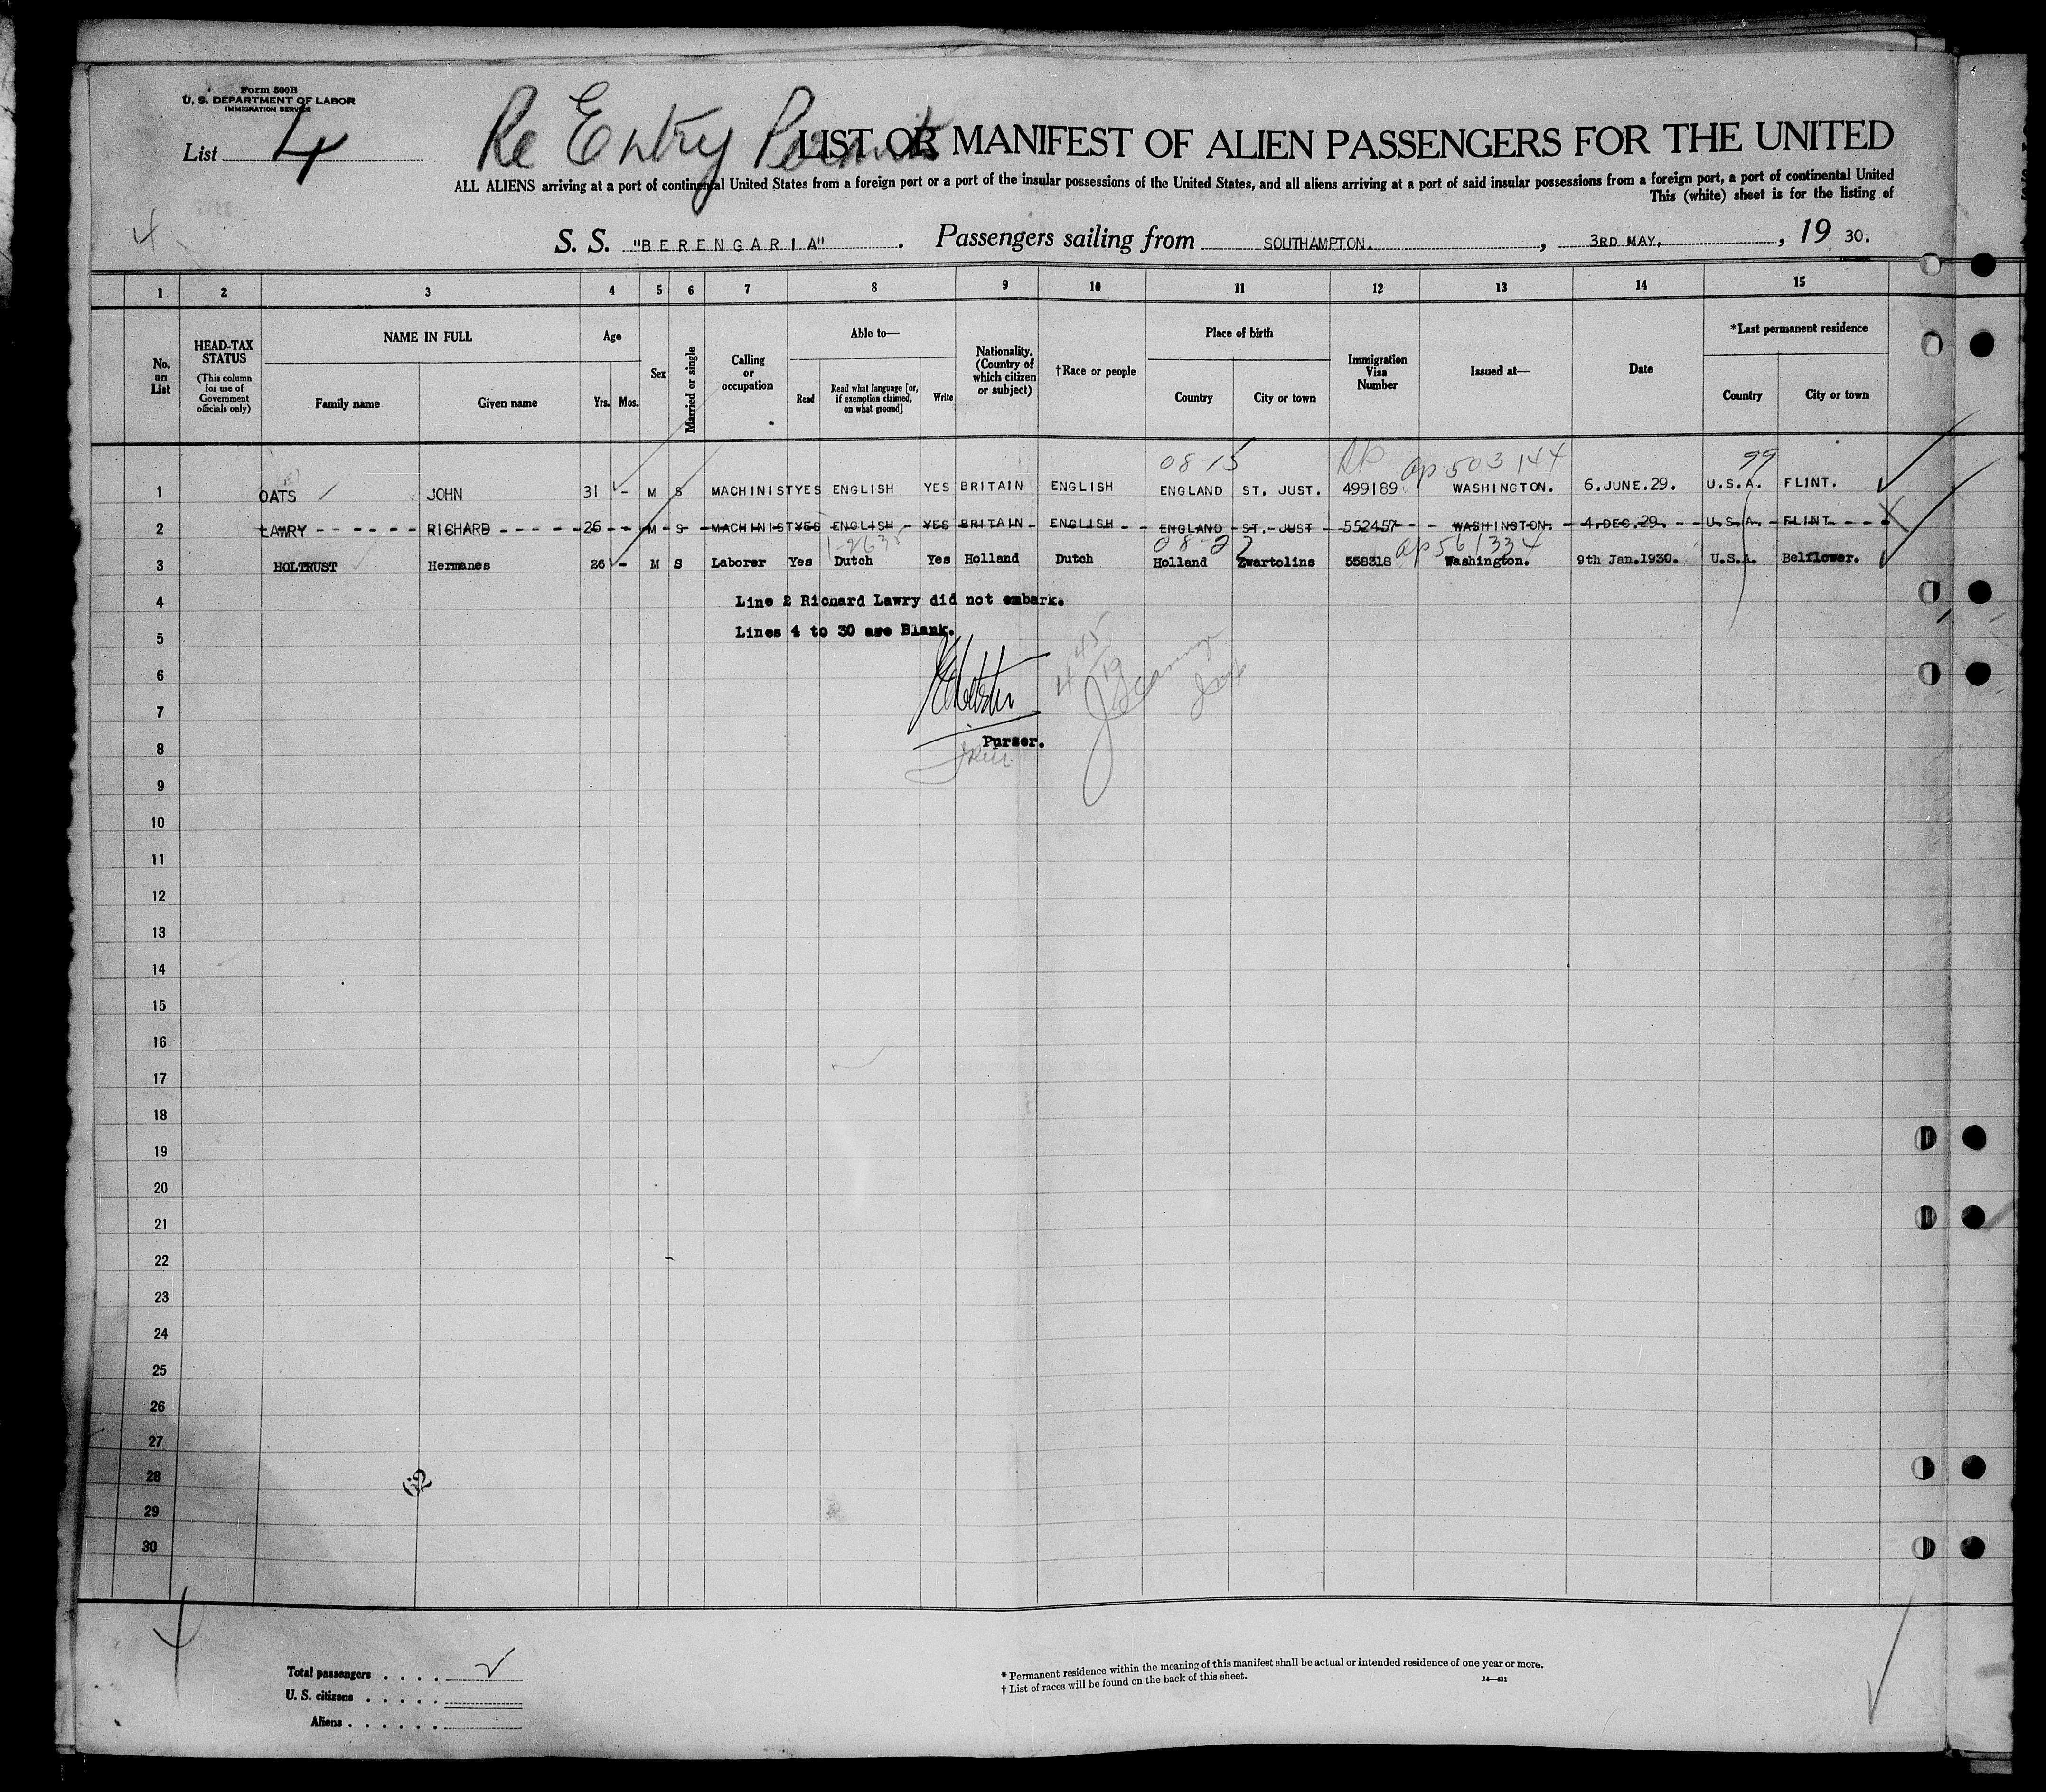 Form 500B
U. S. DEPARTMENT OF LABOR
IMMIGRATION SERVICE
List 4
Re Entry Permits
LIST OR MANIFEST OF ALIEN PASSENGERS FOR THE UNITED
ALL ALIENS arriving at a port of continental United States from a foreign port or a port of the insular possessions of the United States, and all aliens arriving at a port of said insular possessions from a foreign port, a port of continental United
This (white) sheet is for the listing of
4
S. S. "BERENGARIA". Passengers sailing from SOUTHAMPTON. , 3RD MAY. , 19 30.
1 2 3 4 5 6 7 8 9 10 11 12 13 14 15
No. on List
HEAD-TAX STATUS (This column for use of Government officials only)
NAME IN FULL Family name Given name
Age Yrs. Mos.
Sex
Married or single
Calling or occupation
Able to— Read Read what language [or, if exemption claimed, on what ground] Write
Nationality. (Country of which citizen or subject)
†Race or people
Place of birth Country City or town
Immigration Visa Number
Issued at—
Date
*Last permanent residence Country City or town
08-15 RP ap 503144 99
1 OATS JOHN 31 - M S MACHINIST YES ENGLISH YES BRITAIN ENGLISH ENGLAND ST. JUST. 499189 WASHINGTON. 6.JUNE.29. U.S.A. FLINT.
2 LAWRY RICHARD 26 - M S MACHINIST YES ENGLISH YES BRITAIN ENGLISH ENGLAND ST. JUST 552457 WASHINGTON. 4.DEC.29. U.S.A. FLINT.
08-22 ap 561334
3 HOLTRUST Hermanes 26 - M S Laborer Yes Dutch Yes Holland Dutch Holland Zwartolins 558318 Washington. 9th Jan.1930. U.S.A. Belflower.
4 Line 2 Richard Lawry did not embark.
5 Lines 4 to 30 are Blank.
6
7
8 Purser.
9
10
11
12
13
14
15
16
17
18
19
20
21
22
23
24
25
26
27
28
62
29
30
Total passengers . . . .
U. S. citizens . . . . .
Aliens . . . . . .
* Permanent residence within the meaning of this manifest shall be actual or intended residence of one year or more.
† List of races will be found on the back of this sheet.
14—431